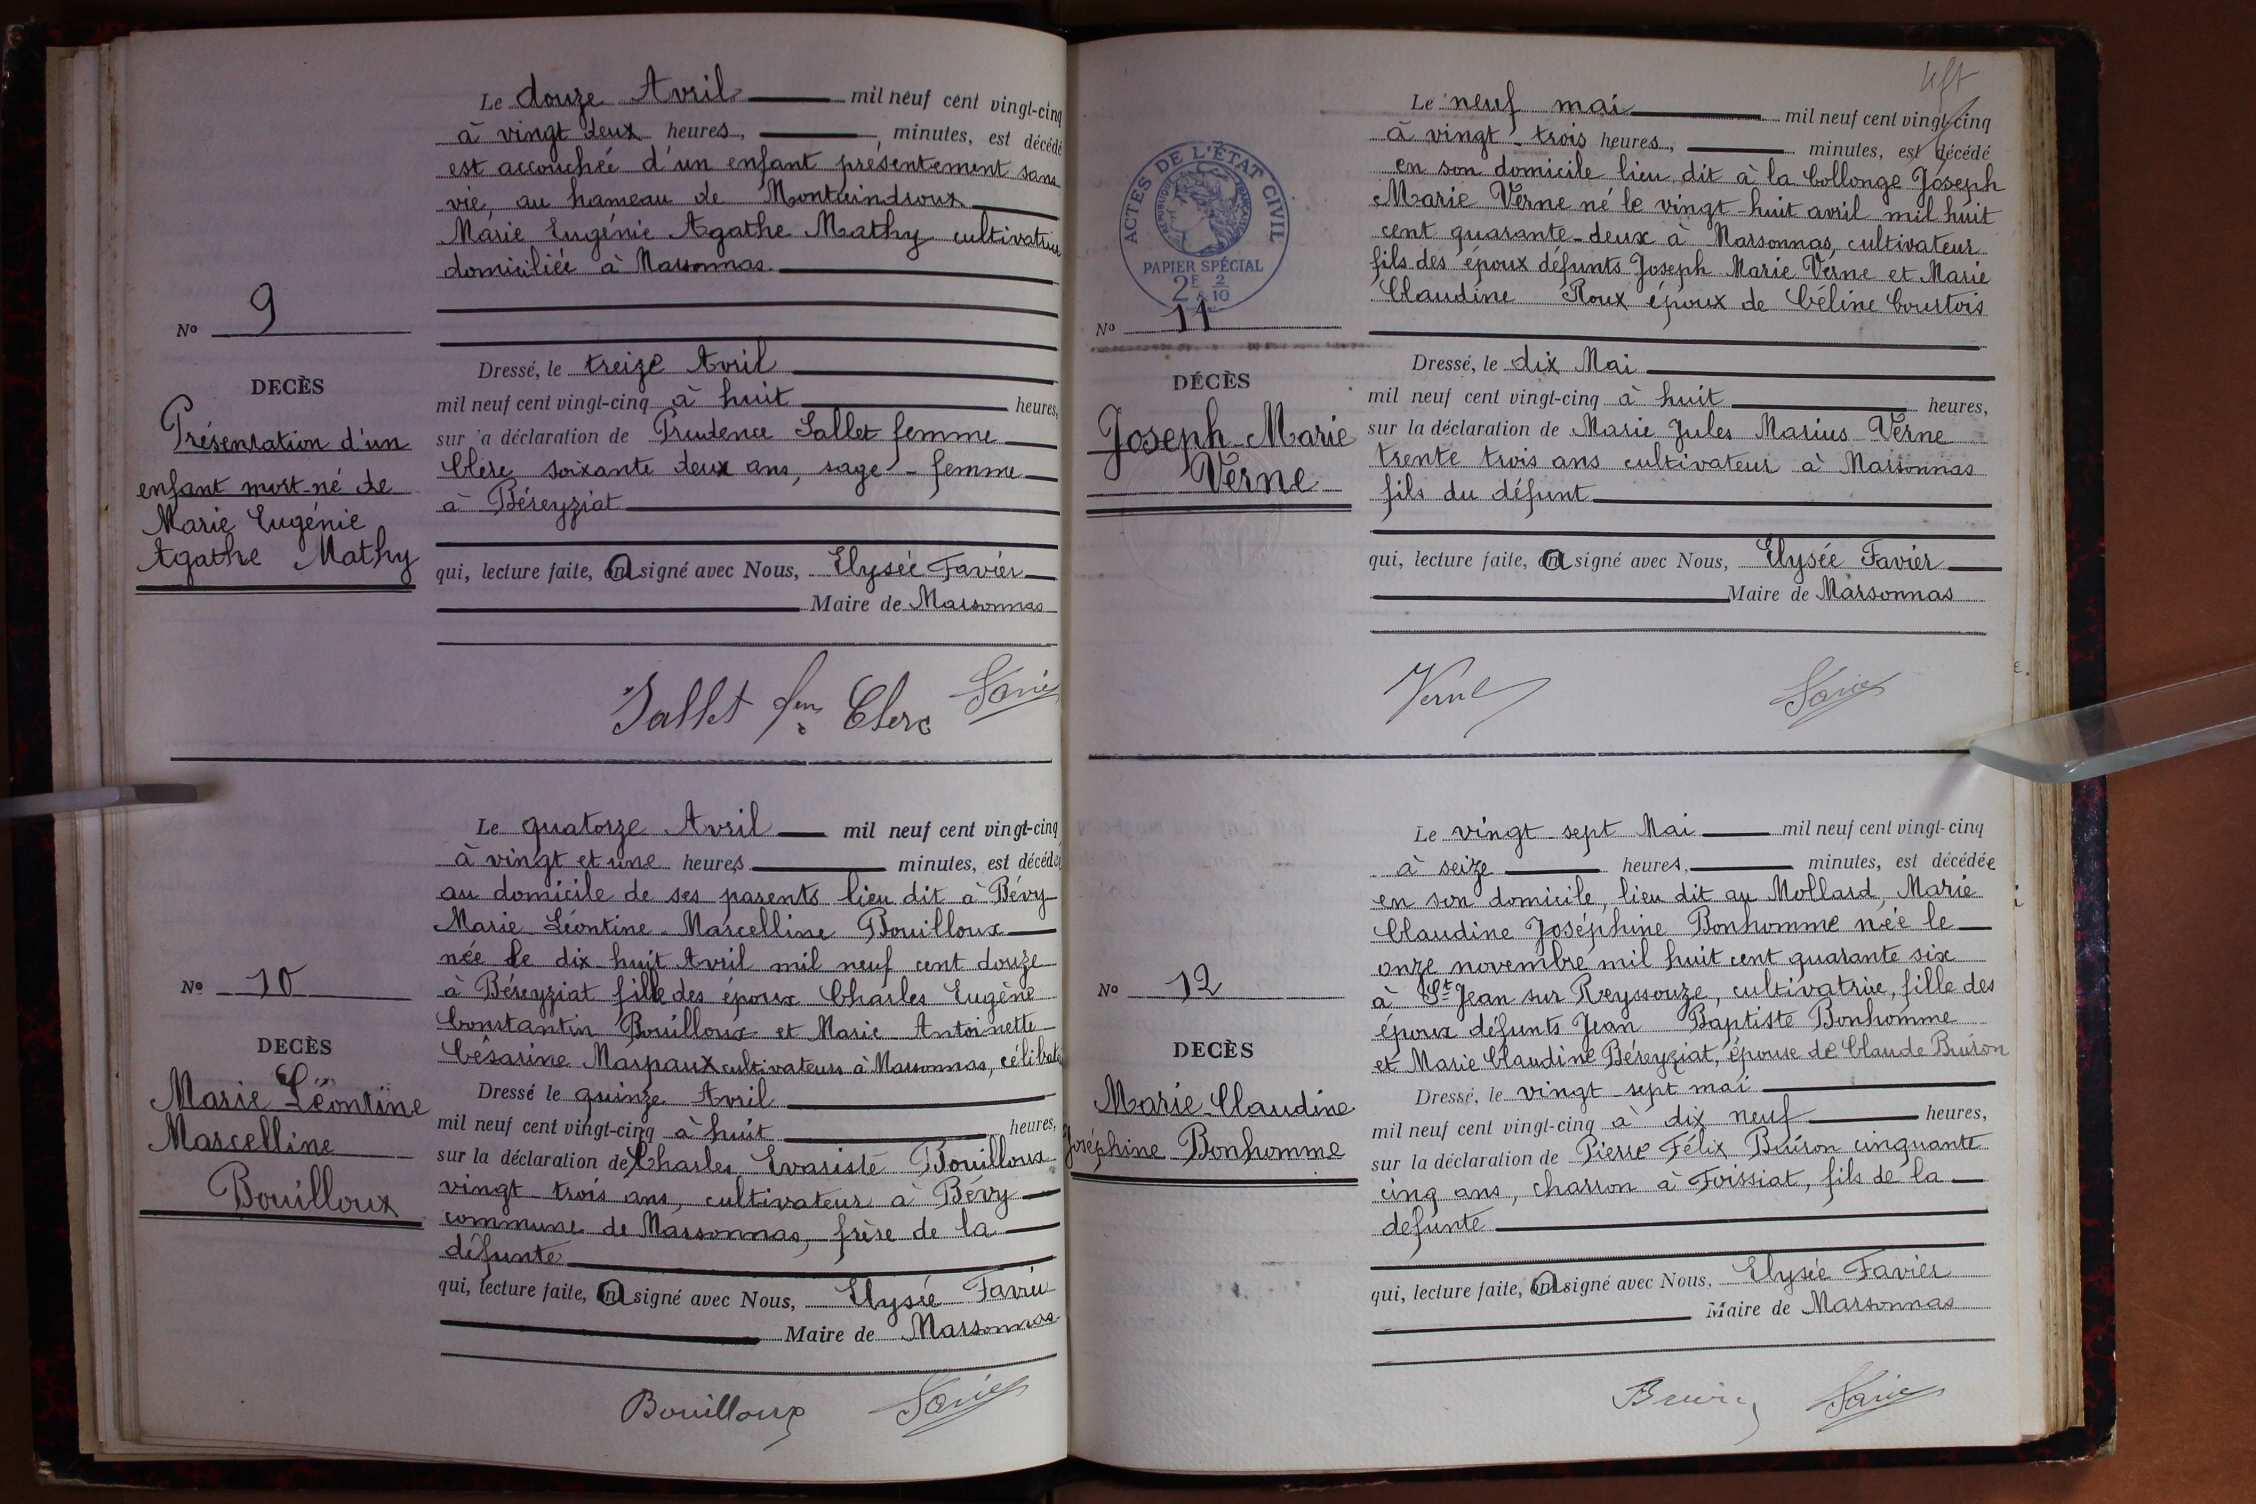 Le douze Avril mil neuf cent vingt-cinq
à vingt deux heures, minutes, est décédé
est accouchée d'un enfant présentement sans
vie, au hameau de Montaindroux
Marie Eugénie Agathe Mathy cultivatrice
domiciliée à Marsonnas
No 9
DECÈS
Présentation d'un
enfant mort-né de
Marie Eugénie
Agathe Mathy
Dressé, le treize Avril
mil neuf cent vingt-cinq à huit heures,
sur a déclaration de Prudence Sallet femme
Clerc soixante deux ans, sage-femme
à Béreyziat
qui, lecture faite, a signé avec Nous, Elysée Favier
Maire de Marsonnas
Sallet fem Clerc Favier
Le quatorze Avril mil neuf cent vingt-cinq
à vingt et une heures minutes, est décédée
au domicile de ses parents lieu dit à Bévy
Marie Léontine Marcelline Bouilloux
née le dix-huit Avril mil neuf cent douze
à Béreyziat fille des époux Charles Eugène
Constantin Bouilloux et Marie Antoinette
Césarine Marpaux cultivateurs à Marsonnas, célibat
No 10
DECÈS
Marie Léontine
Marcelline
Bouilloux
Dressé le quinze Avril
mil neuf cent vingt-cinq à huit heures,
sur la déclaration de Charles Evariste Bouilloux
vingt-trois ans, cultivateur à Bévy
commune de Marsonnas, frère de la
défunte
qui, lecture faite, a signé avec Nous, Elysée Favier
Maire de Marsonnas
Bouilloux Favier
Le neuf mai mil neuf cent vingt-cinq
à vingt-trois heures, minutes, est décédé
en son domicile lieu dit à la Collonge Joseph
Marie Verne né le vingt-huit avril mil huit
cent quarante-deux à Marsonnas, cultivateur
fils des époux défunts Joseph Marie Verne et Marie
Claudine Roux époux de Céline Courtois
ACTES DE L'ÉTAT CIVIL
RÉPUBLIQUE FRANÇAISE
PAPIER SPÉCIAL
2F 2/10
No 11
DÉCÈS
Joseph-Marie
Verne
Dressé, le dix Mai
mil neuf cent vingt-cinq à huit heures,
sur la déclaration de Marie Jules Marius Verne
trente trois ans cultivateur à Marsonnas
fils du défunt
qui, lecture faite, a signé avec Nous, Elysée Favier
Maire de Marsonnas
Verne Favier
Le vingt-sept Mai mil neuf cent vingt-cinq
à seize heures, minutes, est décédée
en son domicile, lieu dit au Mollard, Marie
Claudine Joséphine Bonhomme née le
onze novembre mil huit cent quarante six
à St Jean sur Reyssouze, cultivatrice, fille des
époux défunts Jean Baptiste Bonhomme
et Marie Claudine Béreyziat, épouse de Claude Buiron
No 12
DECÈS
Marie-Claudine
Joséphine Bonhomme
Dressé, le vingt-sept mai
mil neuf cent vingt-cinq à dix neuf heures,
sur la déclaration de Pierre Félix Buiron cinquante
cinq ans, charron à Foissiat, fils de la
défunte
qui, lecture faite, a signé avec Nous, Elysée Favier
Maire de Marsonnas
Buiron Favier